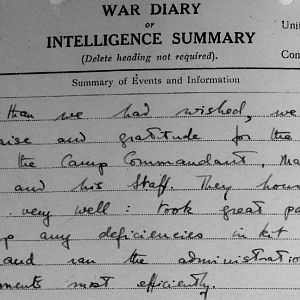 WAR DIARY
or
INTELLIGENCE SUMMARY
(Delete heading not required).
Unit
Com
Summary of Events and Information
than we had wished, we
aise and gratitude for the
the Camp Commandant, Ma
and his Staff. They hous
very well: took great pa
up any deficiencies in kit
and ran the administratio
ments most efficiently.